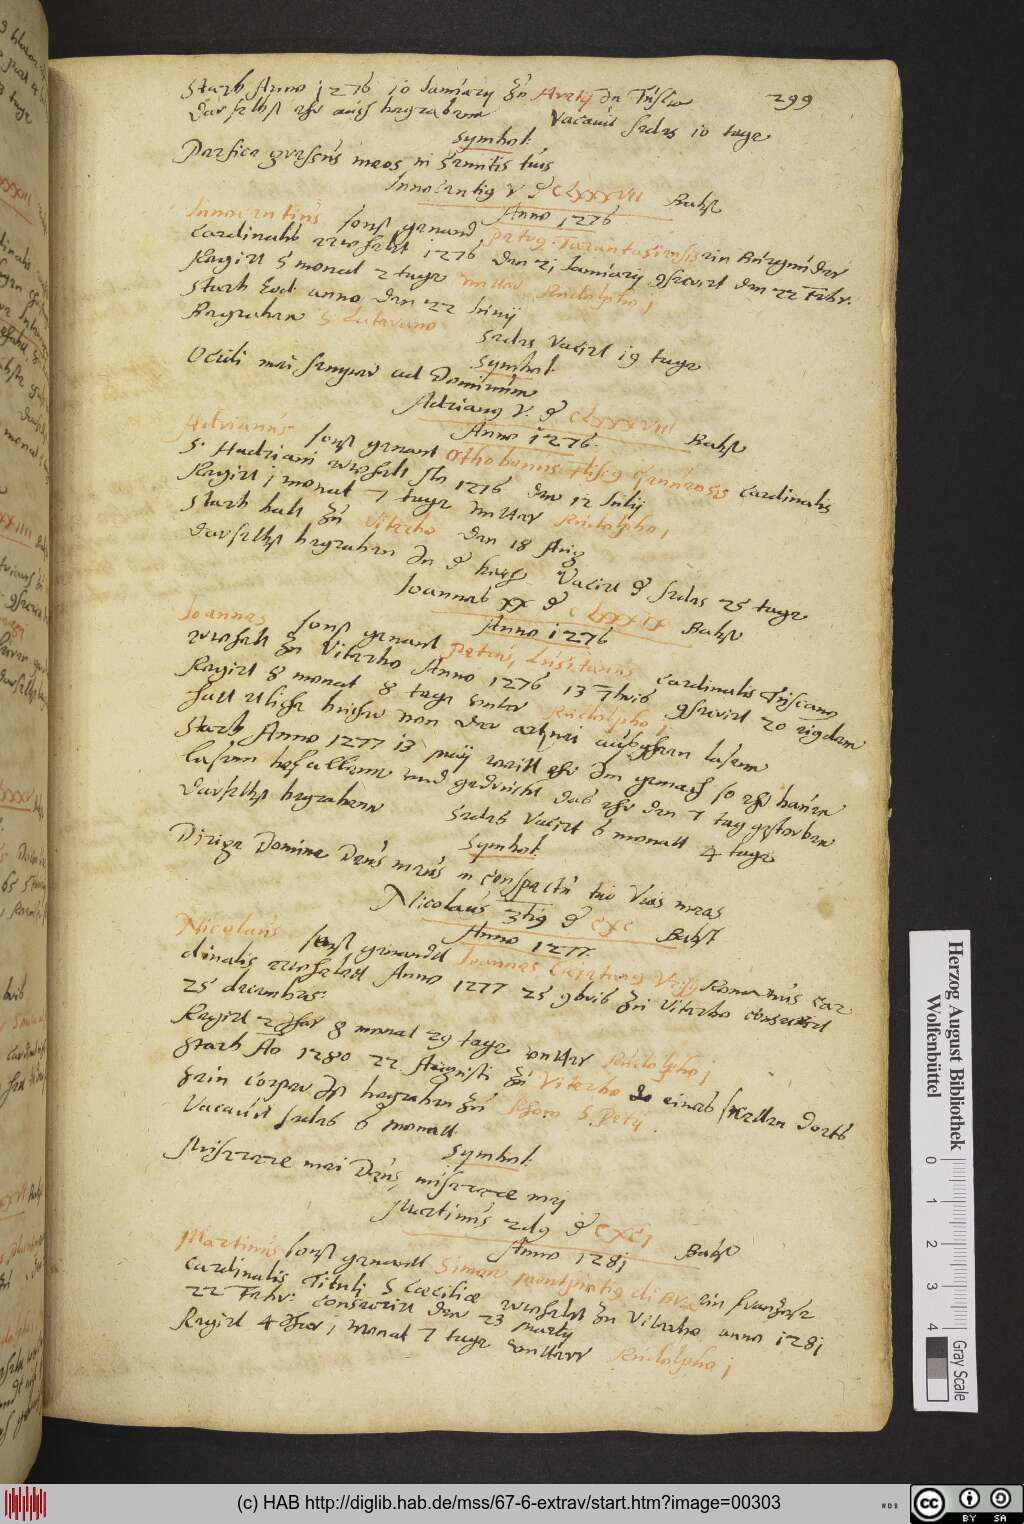 299
Starb Anno 1276 10 Januarÿ Zu Aretij in Tuscia
Daselbst er auch begraben Vacavit sedes 10 tage
Symbol:
Perfice gressus meos in semitis tuis
Innocentig V d CLXXXVII Babst
Anno 1276
Innocentius sonst genand Petrg Tarantasiensis ein Burgunder
Cardinalis erwehlt 1276 den 21 Januarÿ gecreirt den 22 Febr.
Regirt 5 monat 2 tage unter Rudolpho 1
Starb Eod anno den 22 Junij
Begraben S Laterano
Sedes Vacirt 19 tage
Symbol:
Oculi mei semper ad Dominum
Adriang V. d CLXXXVIII Babst
Anno 1276.
Adrianus sonst genant Othobonus flisg Genuensis Cardinalis
S. Hadriani erwehlt Ao 1276 den 12 Julij
Regirt 1 monat 7 tage unter Rudolpho 1
Starb balt zu Viterbo den 18 Aug
Daselbst begraben in d kirch Vacirt d sedes 25 tage
Joannes XX d CLXXXIX Babst
Anno 1276
Joannes sonst genant Petrus Lusitanus Cardinalis Tuscang
erwehlt zu Viterbo Anno 1276 13 7bris gecreirt 20 eigdem
Regirt 8 monat 8 tage unter Rudolpho 1
hatt etliche bucher von der artznei aufgehen lassen
Starb Anno 1277 13 Maij weill er im gemach so er bauen
lassen befallenn und gedruckt das er den 7 tag gestorben
Daselbst begraben Sedes Vacirt 6 monatt 4 tage
Symbol:
Dirige Domine Deus meus in conspectu tuo vias meas
Nicolaus 3tig d CXC Babst
Anno 1277.
Nicolaus sonst genandt Joannes Caietang Ursig Romanus Car
dinalis erwehlett Anno 1277 25 9bris zu Viterbo consecrirt
25 decembris.
Regirt 2 Jhar 8 monat 29 tage unter Rudolpho 1
Starb Ao 1280 22 Augusti zu Viterbo eines
sein Corper ist begraben zu Rhom S. Petrj.
Vacavit sedes 6 monatt
Symbol:
Miserere mei Deus, miserere mej
Martinus 2dg d CXCI Babst
Anno 1281
Martinus sonst genantt Simon ein franzose
Cardinalis Tituli S Cæciliæ erwehlet zu Viterbo anno 1281
22 Febr: consecrirt den 23 Martij
Regirt 4 Jhar 1 monat 7 tage unterr Rudolpho 1
Herzog August Bibliothek
Wolfenbüttel
0 1 2 3 4
Gray Scale
(c) HAB http://diglib.hab.de/mss/67-6-extrav/start.htm?image=00303
WDB
CC BY SA